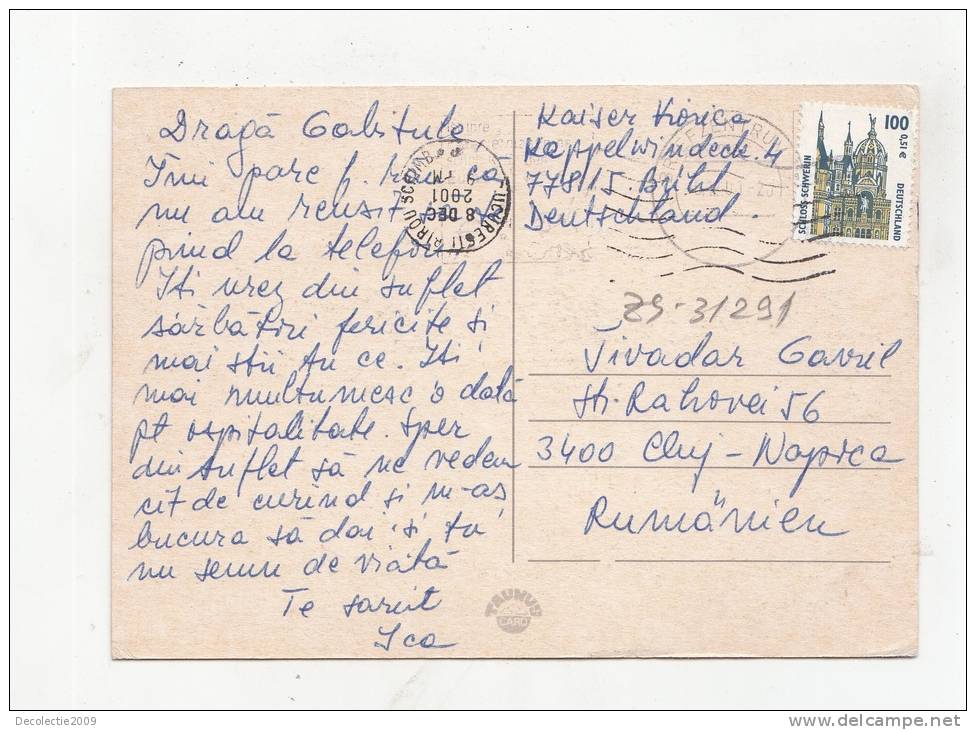 Dragă Gabitule,
Îmi pare f. rău că
nu am reusit să te
prind la telefon.
Iti urez din suflet
sărbători fericite si
mai stii tu ce. Iti
mai multumesc o dată
pt ospitalitate. Sper
din suflet să ne vedem
cit de curind si m-as
bucura să dai si tu
nu semn de viată
Te sarut
Ica
Kaiser Viorica
Kappelwindeck. 4
77815 Bühl
Deutschland
100
0,51 €
SCHLOSS SCHWERIN
DEUTSCHLAND
8 DEC
2001
ZS-31291
Tivadar Gavril
Str. Rahovei 56
3400 Cluj-Napoca
Rumänien
TAUNUS
CARD
Decolectie2009
www.delcampe.net